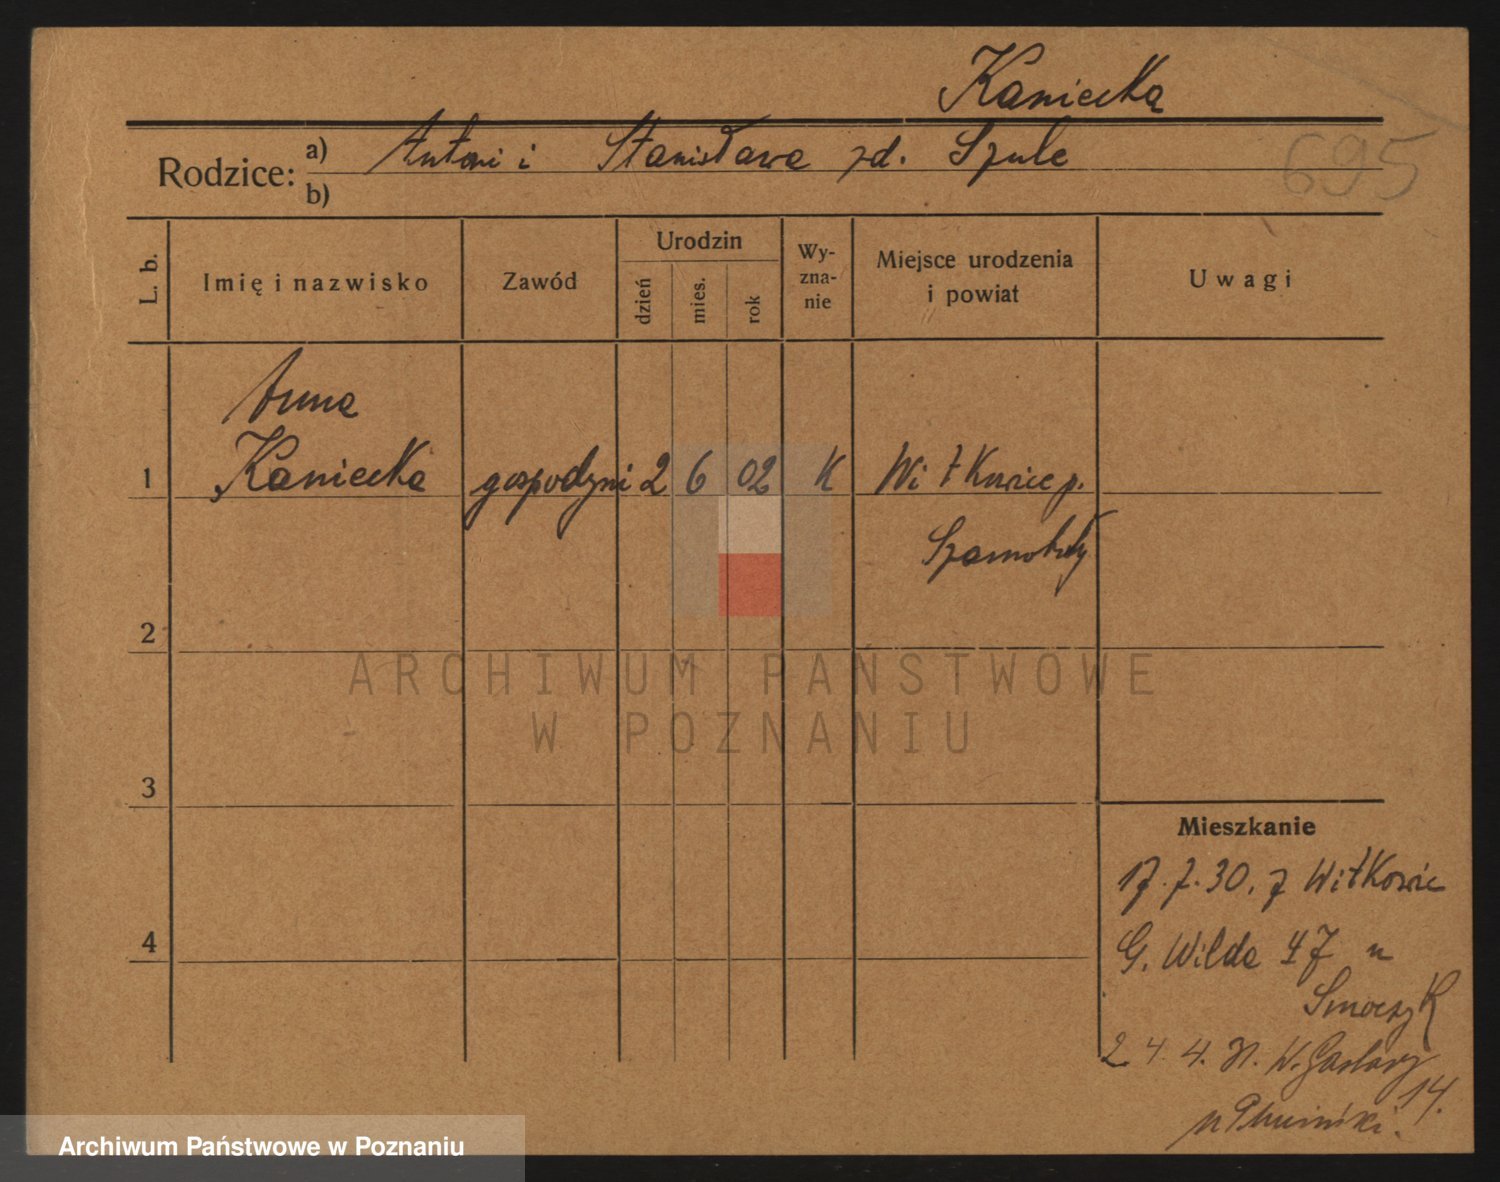 Kaniecka
Rodzice: a) Antoni i Stanisława zd. Szulc
b)
695
L. b.
Imię i nazwisko
Zawód
Urodzin
dzień
mies.
rok
Wy-
zna-
nie
Miejsce urodzenia
i powiat
Uwagi
Anna
1 Kaniecka gospodyni 2 6 02 K Witkowice p.
Szamotuły
2
ARCHIWUM PAŃSTWOWE
W POZNANIU
3
Mieszkanie
17.7.30. z Witkowic
4
G. Wilda 47 u
Smoczyk
24.4.31. W. Garbary
14.
u
Archiwum Państwowe w Poznaniu